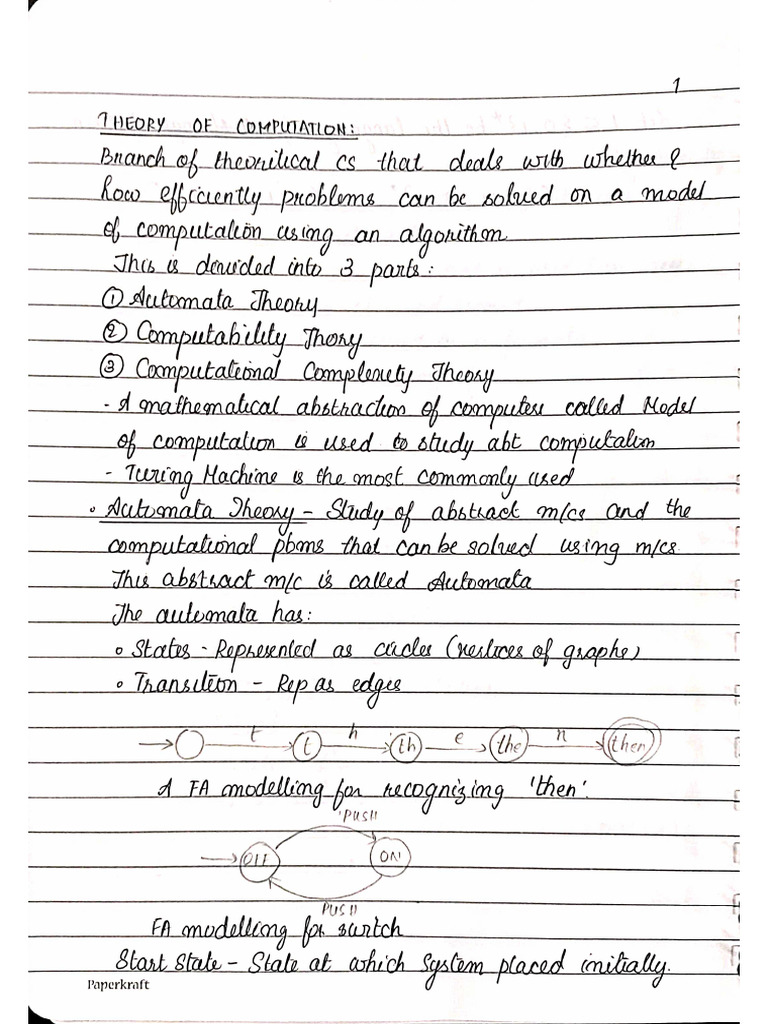 1
THEORY OF COMPUTATION:
Branch of theoritical cs that deals with whether &
how efficiently problems can be solved on a model
of computation using an algorithm
This is devided into 3 parts:
① Automata Theory
② Computability Thory
③ Computational Complexity Theory
- A mathematical abstraction of computers called Model
of computation is used to study abt computation
- Turing Machine is the most commonly used
• Automata Theory - Study of abstract m/cs and the
computational pbms that can be solved using m/cs.
This abstract m/c is called Automata
The automata has:
• States - Represented as circles (vertices of graphs)
• Transition - Rep as edges
t h e n
t th the then
A FA modelling for recognizing 'then'.
PUSH
OFF ON
PUSH
FA modelling for switch
Start State - State at which System placed initially.
Paperkraft